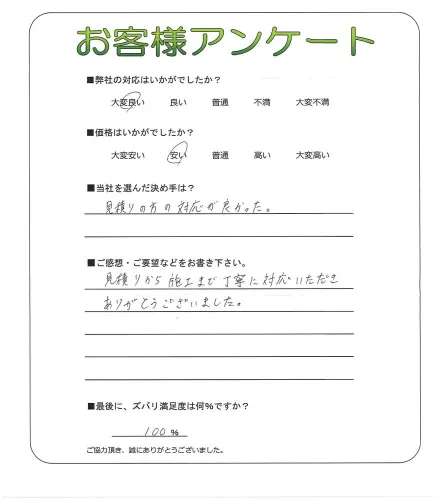 お客様アンケート
■弊社の対応はいかがでしたか?
大変良い 良い 普通 不満 大変不満
■価格はいかがでしたか?
大変安い 安い 普通 高い 大変高い
■当社を選んだ決め手は?
見積りの方の対応が良かった。
■ご感想・ご要望などをお書き下さい。
見積りから施工まで丁寧に対応いただき
ありがとうございました。
■最後に、ズバリ満足度は何%ですか?
100 %
ご協力頂き、誠にありがとうございました。